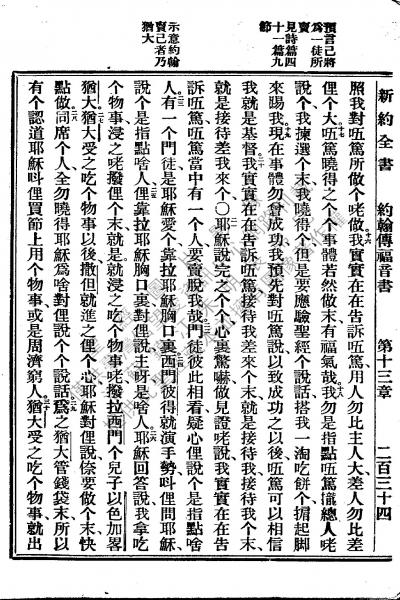 新約全書 約翰傳福音書 第十三章 二百三十四
預言己將
為一徒所
賣
見詩篇四
十一篇九
節
示意約翰
賣己者乃
猶大
照我對㕶篤所做个咾做十六我實實在在告訴㕶篤用人勿比主人大差人勿比差
俚个大十七㕶篤曉得之个个事體若然做末有福氣哉十八我勿是指點㕶篤攏總人咾
說个我揀選个末我曉得个但是要應驗聖經个說話搭我一淘吃餅个掮起脚
來踢我十九現在事體勿曾成功我預先對㕶篤說以致成功之以後㕶篤可以相信
我就是基督二十我實實在在告訴㕶篤接待我差來个末就是接待我接待我个末
就是接待差我來个〇二一耶穌說完之个个心裏驚嚇做見證咾說我實實在在告
訴㕶篤㕶篤當中有一个人要賣脫我哉二二門徒彼此相看疑心俚說个是指點啥
人二三有一个門徒是耶穌愛个靠拉耶穌胸口裏二四西門彼得就演手勢呌俚問耶穌
說个是指點啥人二五俚靠拉耶穌胸口裏對俚說主呀是啥人二六耶穌回答說我拿吃
个物事浸之咾撥俚个末就是就浸之吃个物事咾撥拉西門个兒子以色加畧
猶大二七猶大受之吃个物事以後撒但就進之俚个心耶穌對俚說倷要做个末快
點做二八同席个人全勿曉得耶穌爲啥對俚說个个說話二九爲之猶大管錢袋末所以
有个認道耶穌呌俚買節上用个物事或是周濟窮人三十猶大受之吃个物事就出